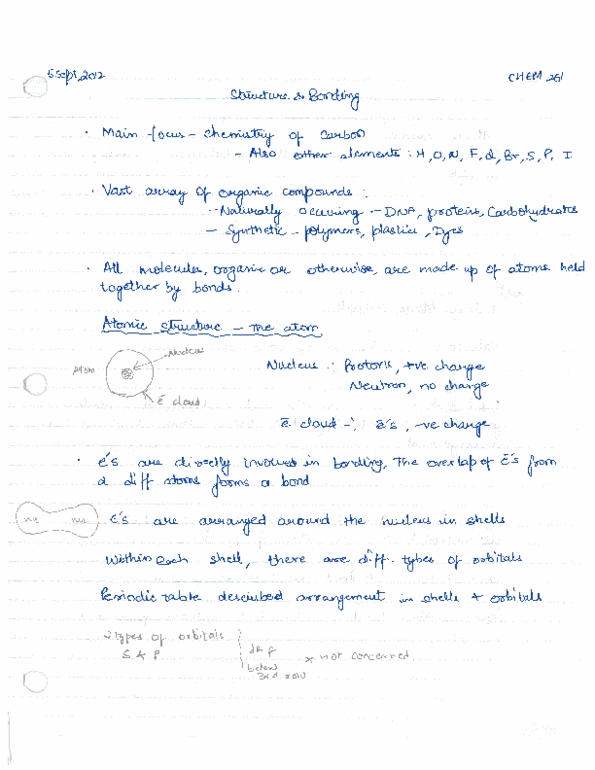 5 Sept, 2012
CHEM 261
Structure & Bonding
· Main focus - chemistry of carbon
- Also other elements : H, O, N, F, Cl, Br, S, P, I
· Vast array of organic compounds :
- Naturally occuring - DNA, proteins, Carbohydrates
- Synthetic - polymers, plastics, Dyes
· All molecules, organic or otherwise, are made up of atoms held
together by bonds.
Atomic structure - The atom
Atom
Nucleus
ē cloud
Nucleus : Protons, +ve charge
Neutron, no charge
ē cloud - ē's, -ve charge
· ē's are directly involved in bonding. The overlap of ē's from
2 diff atoms forms a bond
ē's are arranged around the nucleus in shells
Within each shell, there are diff. types of orbitals
Periodic table described arrangement in shells + orbitals
types of orbitals
S & P
d & f
below
3rd row
x not concerned